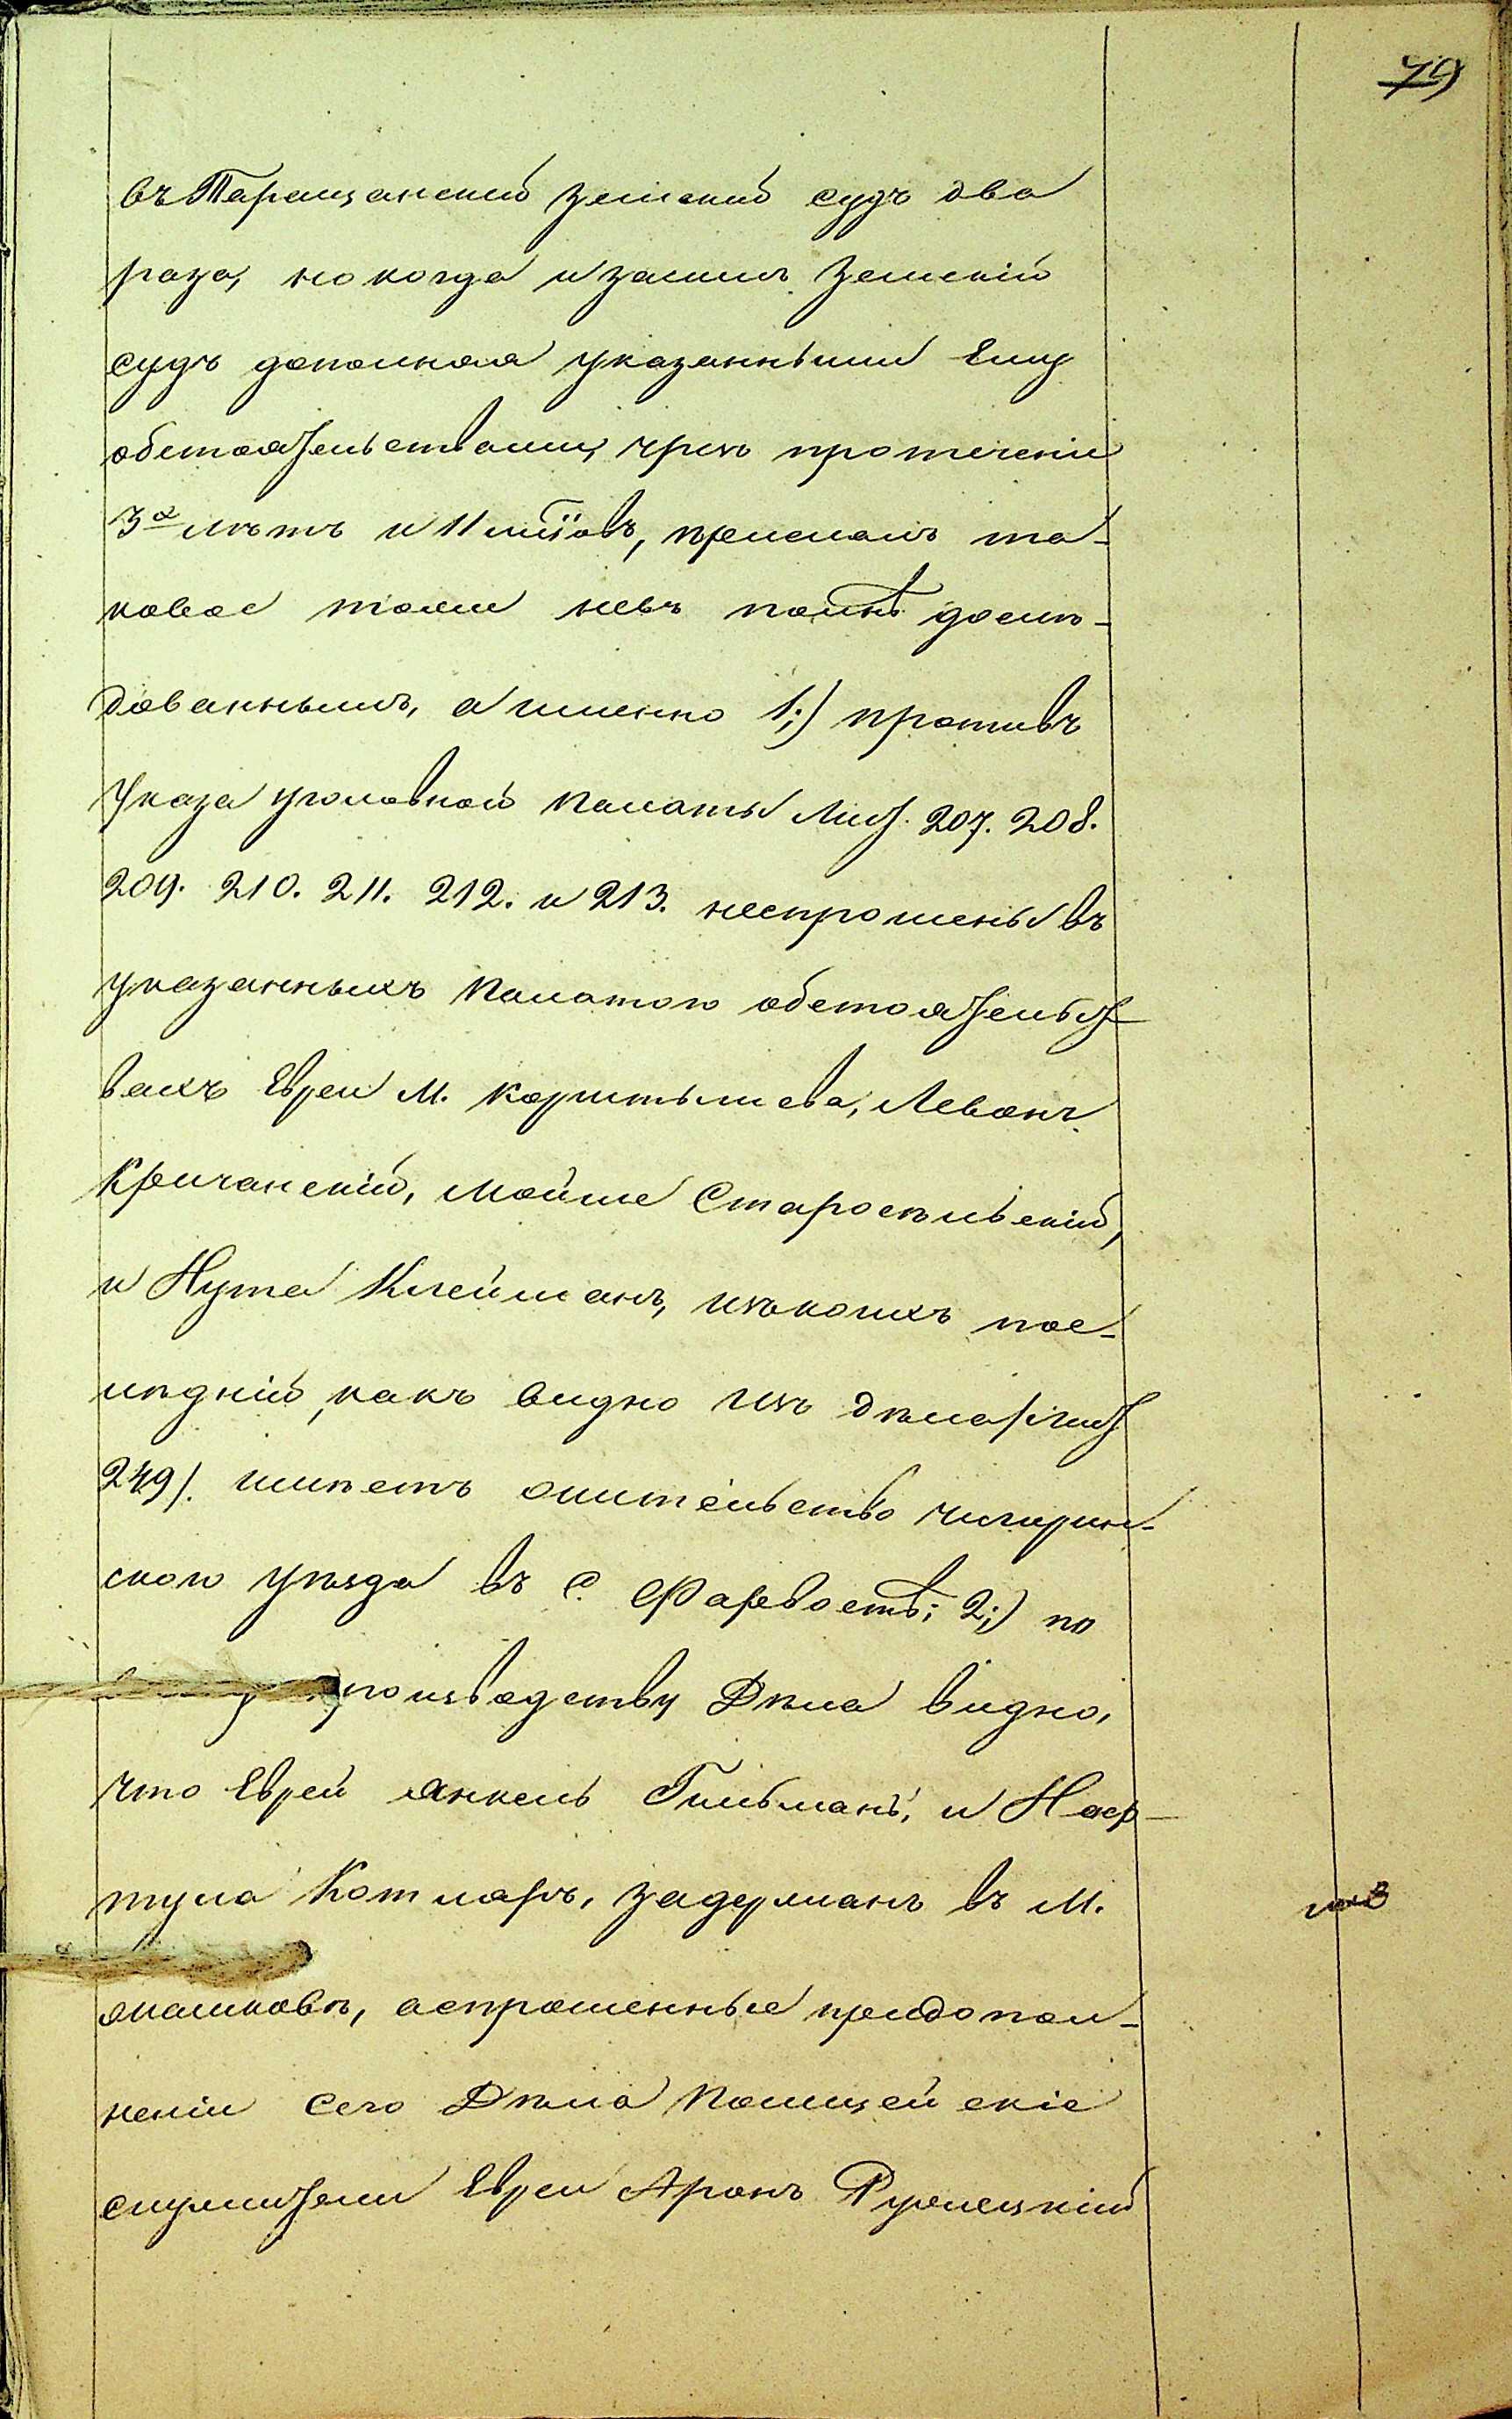 79
въ Таращанский земский судъ два
раза, но когда и за симъ Земскій
судъ дополняя указанными Ему
обстоятельствами, чрезъ протеченіи
3х лѣтъ и 11 мцовъ, прислалъ та-
ковое тоже невъ полнѣ дослѣ-
дованнымъ, а именно 1;) противъ
Указа уголовной Палаты Лист. 207. 208.
209. 210. 211. 212. и 213. неспрошены въ
указанныхъ Палатою обстоятельст
вахъ Евреи М. Корытылева, Левонъ
Кричанскій, Мойше Старосѣльскій,
и Нута Клейманъ, изъ коихъ пос-
лѣдній, какъ видно изъ дѣла /лист
249/. имѣетъ жительство чигирин-
ского уѣзда въ С. Фарвостѣ; 2;) по
производству Дѣла видно,
что Еврей Янкель Гильманъ, и Наф-
тула Котляръ, задержанъ въ М.
Жашковѣ, а спрошенные придопол-
неніи сего Дѣла Полицейскіе
служители Евреи Аронъ Ружецкій